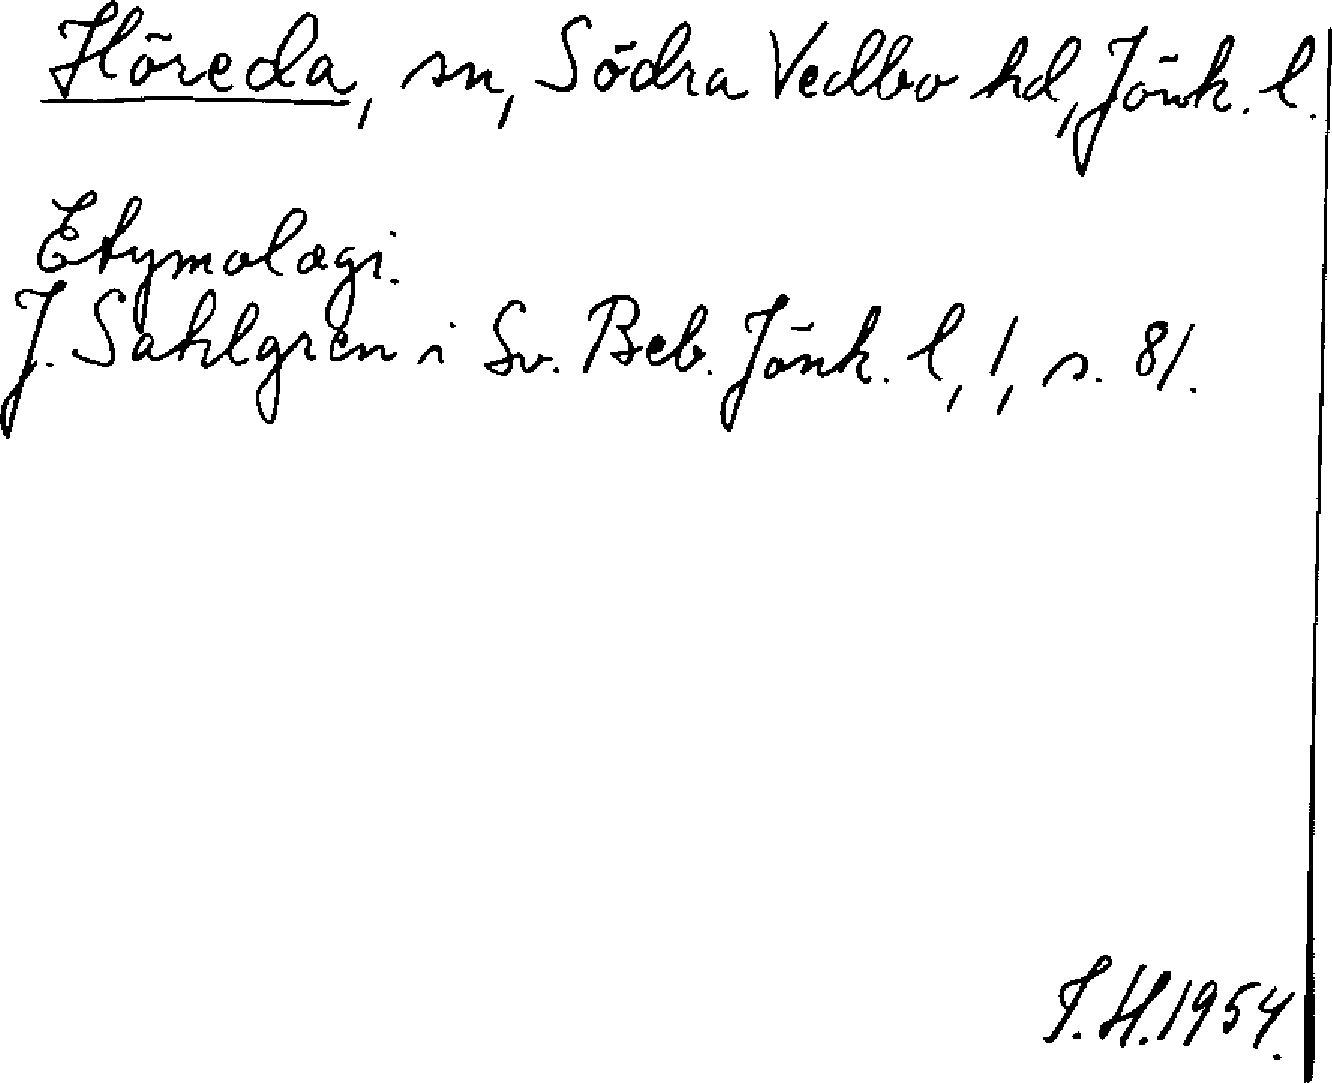 Höreda, sn, Södra Vedbo hd, Jönk. l.
Etymologi.
J. Sahlgren i Sv. Beb. Jönk. l, 1, s. 81.
I.H.1954.